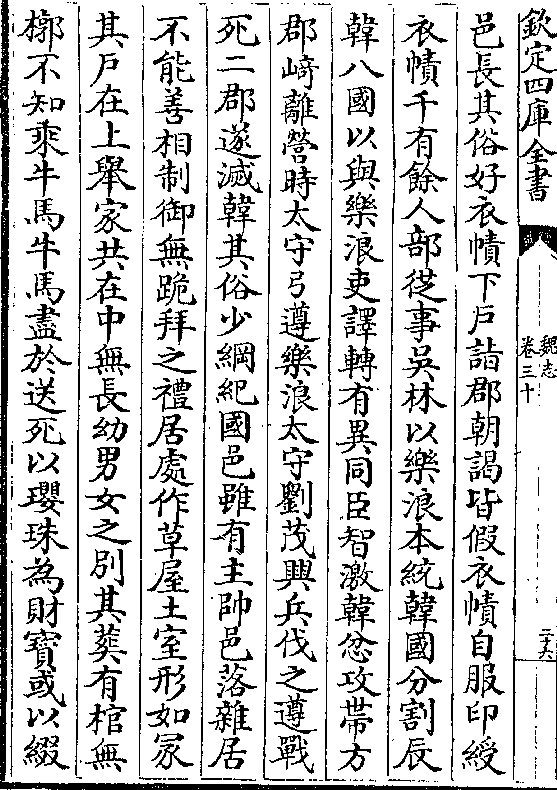 欽定四庫全書
魏志
卷三十
二十六
邑長其俗好衣幘下戶詣郡朝謁皆假衣幘自服印綬
衣幘千有餘人部從事吳林以樂浪本統韓國分割辰
韓八國以與樂浪吏譯轉有異同臣智激韓忿攻帶方
郡﨑離營時太守弓遵樂浪太守劉茂興兵伐之遵戰
死二郡遂滅韓其俗少綱紀國邑雖有主帥邑落雜居
不能善相制御無跪拜之禮居處作草屋土室形如冢
其戶在上舉家共在中無長幼男女之別其葬有棺無
槨不知乘牛馬牛馬盡於送死以瓔珠為財寶或以綴